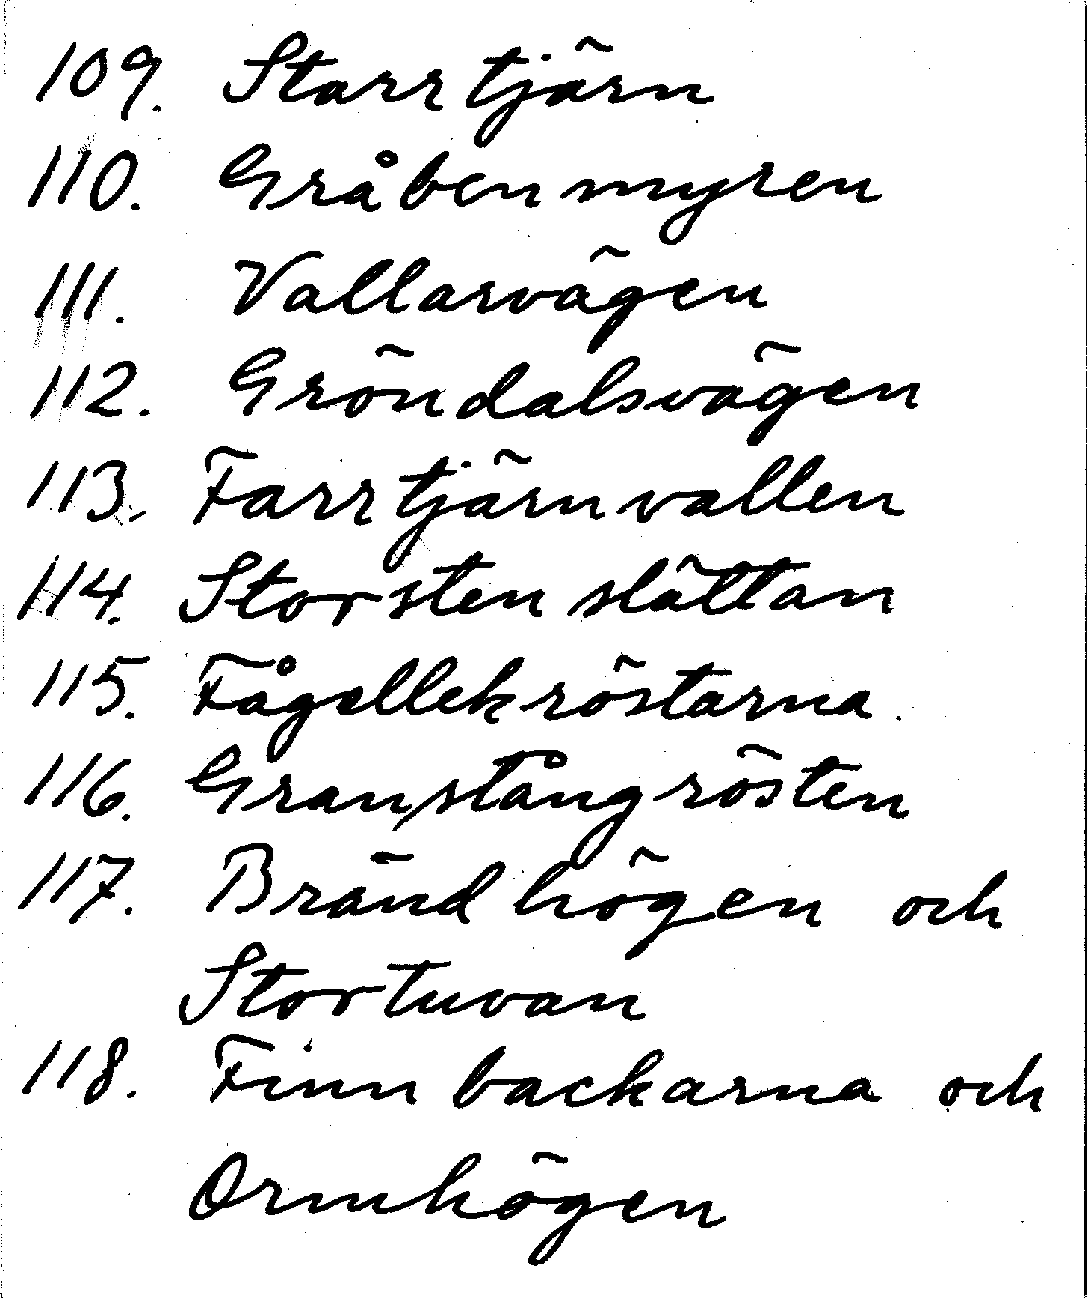 109. Starrtjärn
110. Gråbenmyren
111. Vallarvägen
112. Gröndalsvägen
113. Farrtjärnvallen
114. Storstenslättan
115. Fågellekröstarna.
116. Granstångrösten
117. Brändhögen och
Stortuvan
118. Finnbackarna och
Ormhögen